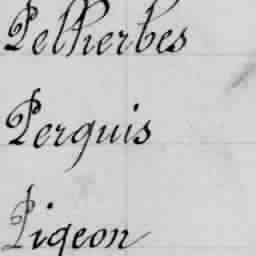 Pelherbes
Perquis
Pigeon